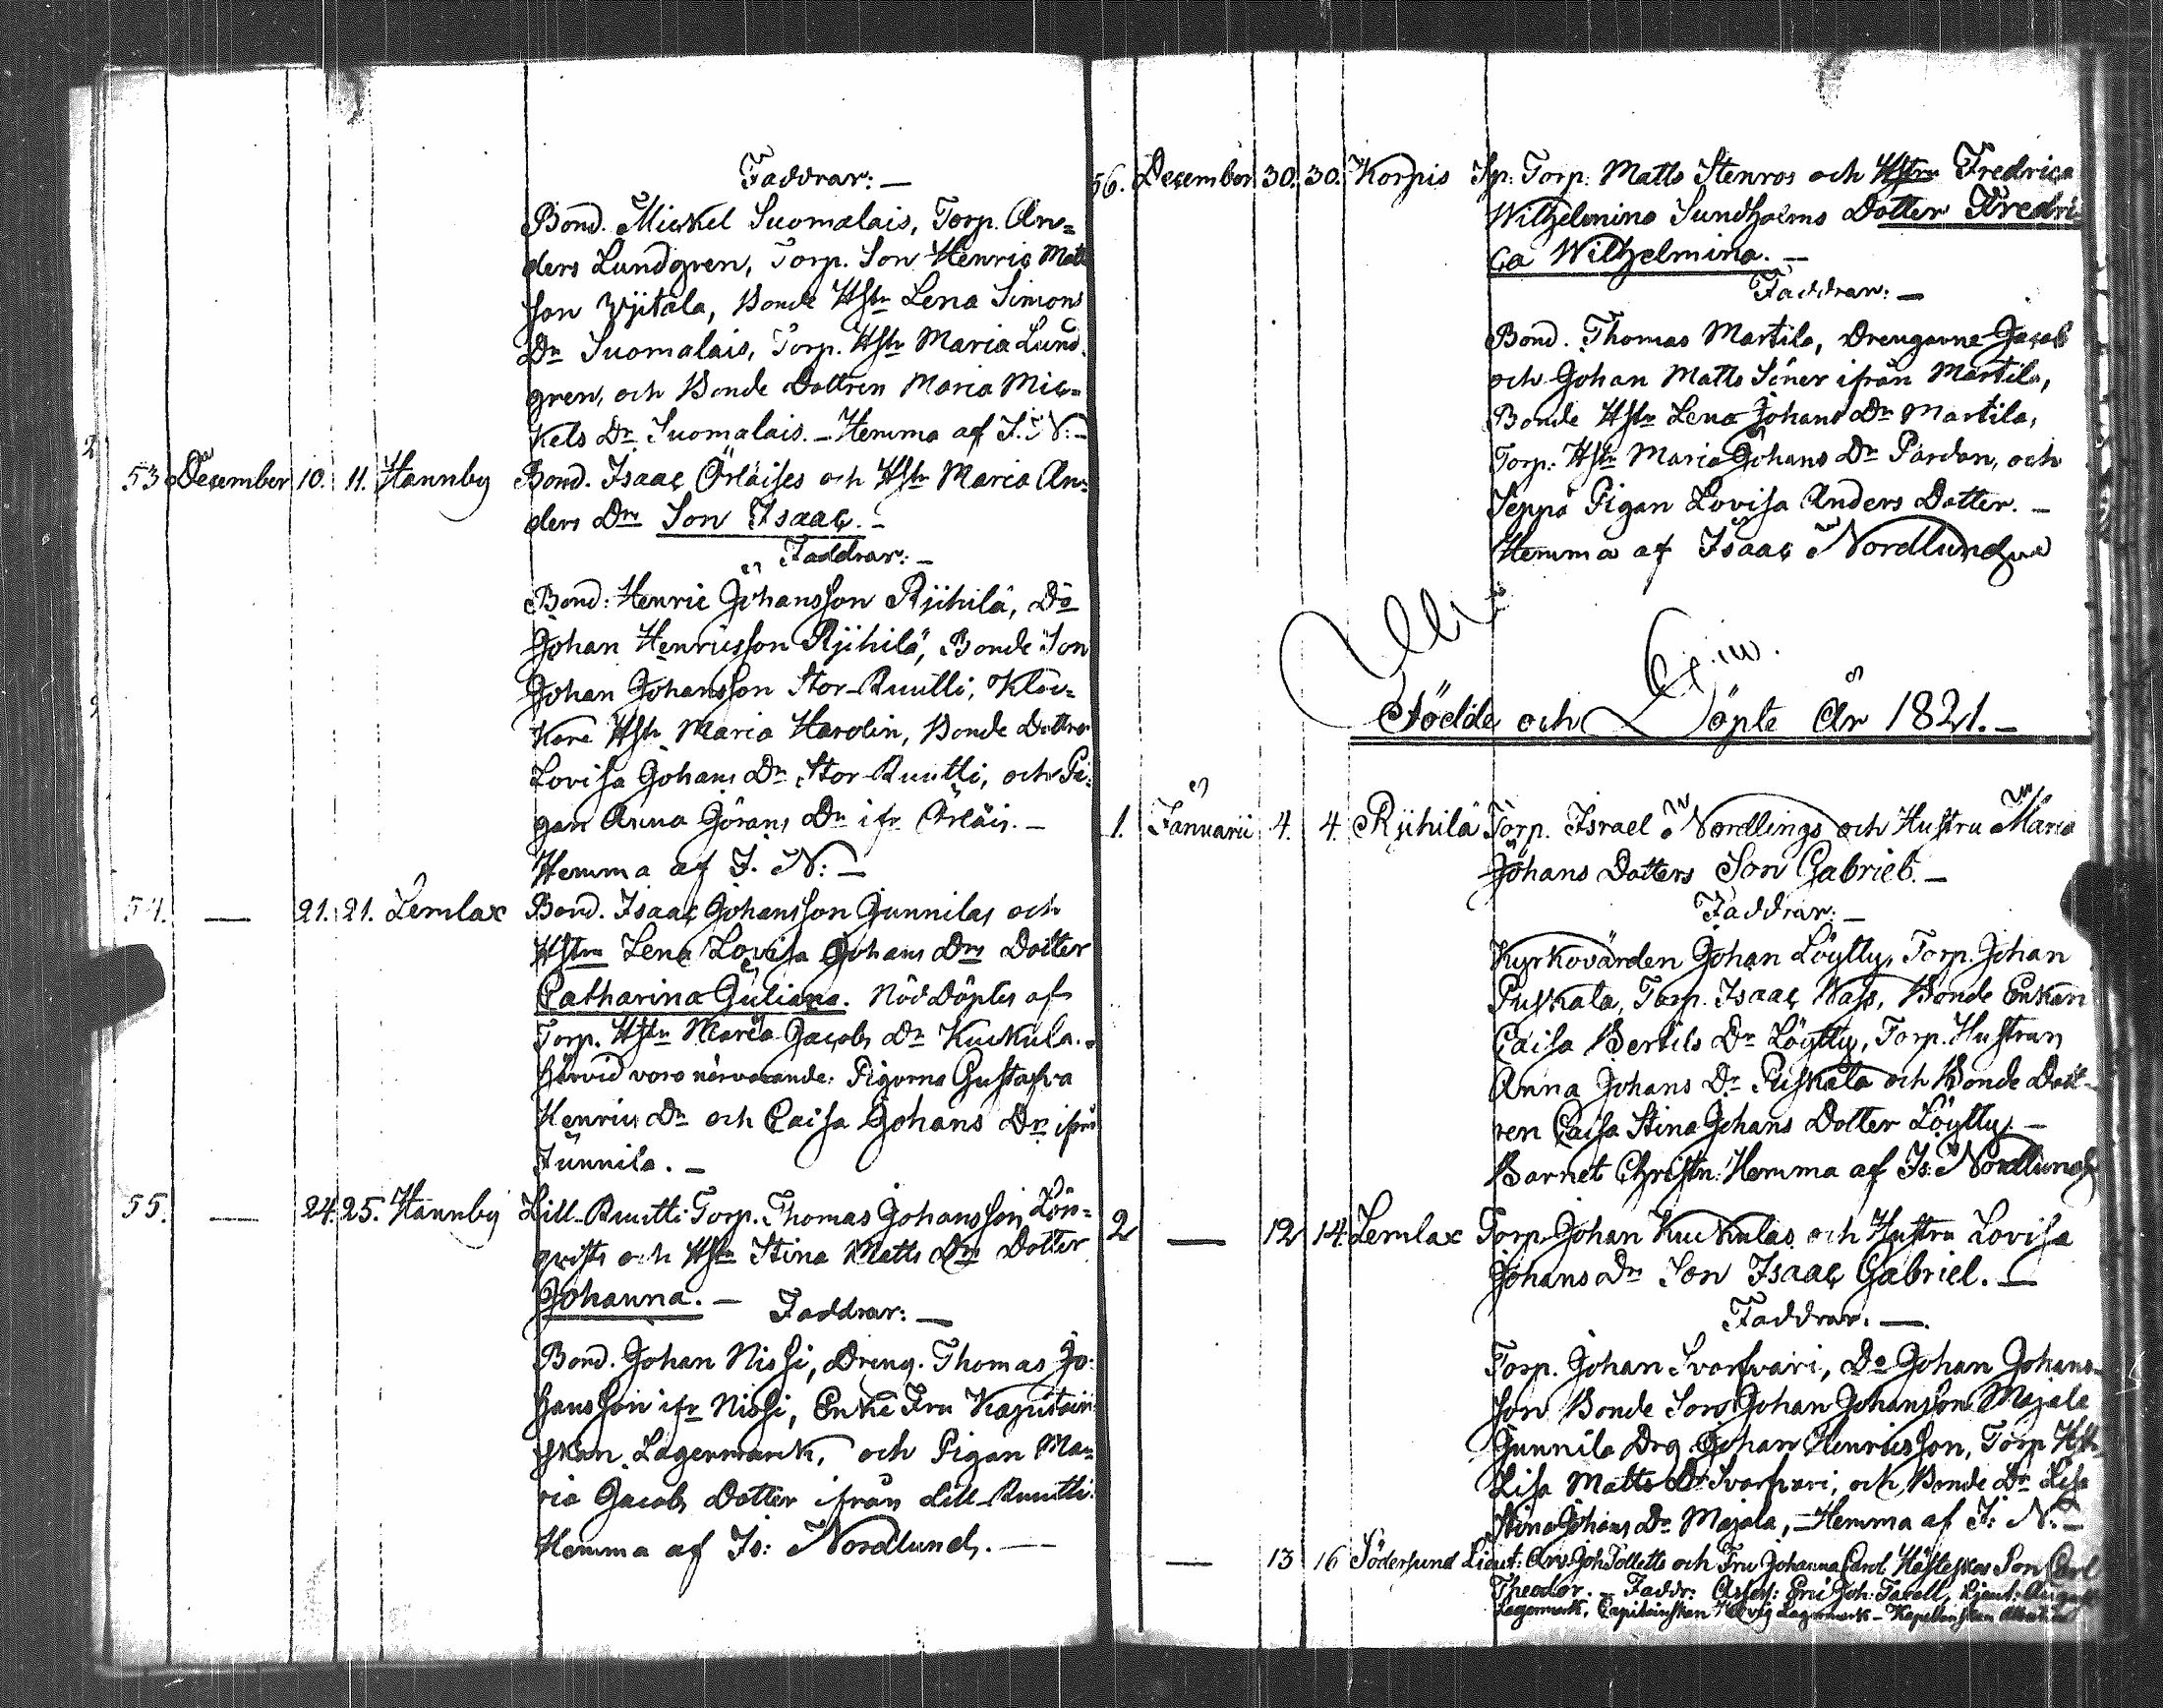 Faddrar: —
Bond. Mickel Suomalais, Torp. An=
ders Lundgren, Torp. Son Henric Mats
son Yjitala, Bonde Hstr Lena Simons
Dr Suomalais, Torp. Hstr Maria Lund
gren, och Bonde Dottren Maria Mic=
kels Dr Suomalais. — Hemma af I. N: —
53 December 10. 11. Hannby Bond. Isaac Örläises och Hstr Maria An=
ders Drs Son Isaac. —
Faddrar: —
Bond: Henric Johansson Rjihilä, Do
Johan Henricsson Rjihilä, Bonde Son
Johan Johansson Stor-Ruutli, Kloc=
kare Hstr Maria Harolin, Bonde Dottren
Lovisa Johans Dr Stor-Ruutli, och Pi=
gan Anna Görans Dr ifr Örläis. —
Hemma af I. N: —
54. — 21. 21. Lemlax Bond. Isaac Johansson Gunnilas och
Hstru Lena Lovisa Johans Drs Dotter
Catharina Juliana. Nöd Döptes af
Torp. Hstr Maria Jacobs Dr Kuckula.
härvid voro närvarande: Pigorna Gustafva
Henrics Dr och Caisa Johans Dr ifrån
Gunnila. —
55. — 24. 25. Hannby Lill-Ruutli Torp. Thomas Johansson Lön=
qvists och Hstr Stina Matts Drs Dotter
Johanna. — Faddrar: —
Bond. Johan Nissi, Dreng. Thomas Jo=
hansson ifr Nissi, Enke Fru Kapitain
skan Lagermarck, och Pigan Ma=
ria Jacobs Dotter ifrån Lill-Ruutli.
Hemma af Is: Nordlund. —
56. December 30. 30. Korpis Sp. Torp. Matts Stenros och Hstru Fredrica
Wilhelmina Sundholms Dotter Fredri=
ca Wilhelmina. —
Faddrar: —
Bond. Thomas Martila, Drengarne Jacob
och Johan Matts Söner ifrån Martila,
Bonde Hstr Lena Johans Dr Martila,
Torp. Hstr Maria Johans Dr Pardan, och
Seppä Pigan Lovisa Anders Dotter. —
Hemma af Isaac Nordlund
Födde och Döpte År 1821. —
1. Januarii 4. 4. Rjihilä Torp. Israel Nordlings och Hustru Maria
Johans Dotters Son Gabriel. —
Faddrar: —
Kyrkovärden Johan Löytty, Torp. Johan
Puskala, Torp. Isaac Wass, Bonde Enkan
Caisa Bertils Dr Löytty, Torp. Hustrun
Anna Johans Dr Puskala och Bonde Dott-
ren Caisa Stina Johans Dotter Löytty. —
Barnet Christn: Hemma af Is: Nordlund
2 — 12 14 Lemlax Torp Johan Kuckulas och Hustru Lovisa
Johans Dr Son Isaac Gabriel. —
Faddrar. —
Torp. Johan Svarfvari, Do Johan Johans-
son Bonde Son Johan Johansson Majala
Gunnila Drg Johan Henricsson, Torp Hstr
Lisa Matts Dr Svarfvari, och Bonde Dr Lisa
Stina Johans Dr Majala, — Hemma af I: N: —
— 13 16 Södersund Lieut: Joh Tolletts och Fru Johanna Carol Hästeskos Son Carl
Theodor. — Faddr: Assess: Eric Joh: Taxell, Lieut: August
Lagermark, Capitainskan Hedvig Lagermark —